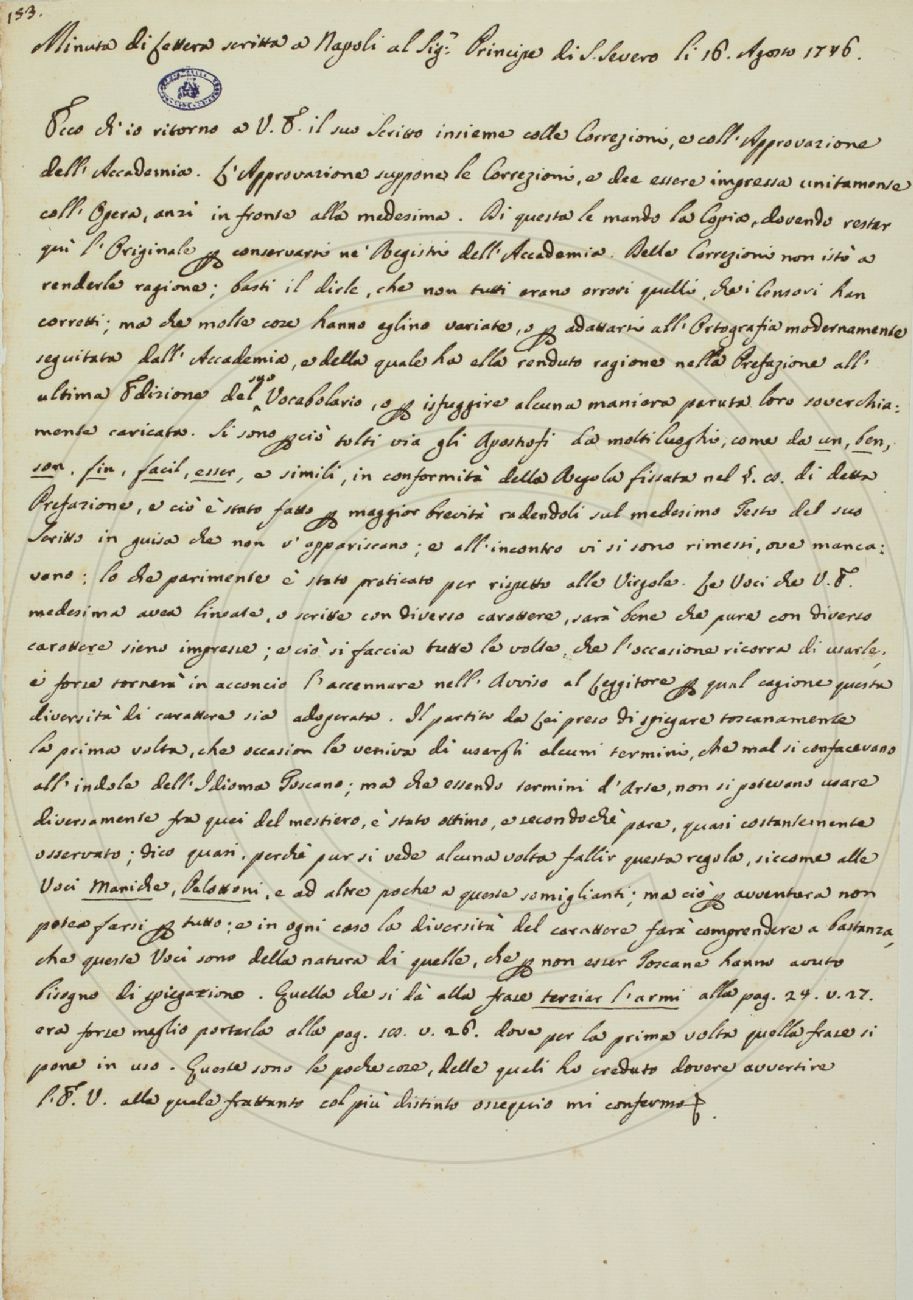 153.
Minuta di Lettera scritta a Napoli al Sig.r Principe di S. Severo li 16. Agosto 1746.
Ecco ch'io ritorno a V. E. il suo Scritto insieme colle Correzioni, e coll'Approvazione
dell'Accademia. L'Approvazione suppone le Correzioni, e dee essere impressa unitamente
coll'Opera, anzi in fronte alla medesima. Di questa le mando la Copia, dovendo restar
quì l'Originale per conservarsi ne' Registri dell'Accademia. Delle Correzioni non istò a
renderle ragione; basti il dirle, che non tutti erano errori quelli, che i Censori han
corretti; ma che molte cose hanno eglino variate, o per adattarsi all'Ortografia modernamente
seguitata dall'Accademia, e della quale ha ella renduto ragione nella Prefazione all'
ultima Edizione del suo Vocabolario, o per isfuggire alcuna maniera paruta loro soverchia=
mente caricata. Si sono perciò tolti via gli Apostrofi da molti luoghi, come da un, ben,
son, fin, facil, esser, e simili, in conformità della Regola fissata nel §. 10. di detta
Prefazione, e ciò è stato fatto per maggior brevità radendoli sul medesimo Testo del suo
Scritto in guisa che non v'appariscano; e all'incontro vi si sono rimessi, ove manca=
vano; lo che parimente è stato praticato per rispetto alle Virgole. Le Voci che V. E.
medesima avea lineate, o scritte con diverso carattere, sarà bene che pure con diverso
carattere sieno impresse; e ciò si faccia tutte le volte, che l'occasione ricorra di usarle,
e forse tornerà in acconcio l'accennare nell'Avviso al Leggitore per qual cagione questa
diversità di carattere sia adoperata. Il partito da Lei preso di spiegare toscanamente
la prima volta, che occasion le veniva di usargli alcuni termini, che mal si confacevano
all'indole dell'Idioma Toscano; ma che essendo termini d'Arte, non si potevano usare
diversamente fra quei del mestiero, è stato ottimo, e secondochè pare, quasi costantemente
osservato; dico quasi, perchè pur si vede alcuna volta fallir questa regola, siccome alle
Voci Maniche, Pelottoni, e ad altre poche a queste somiglianti; ma ciò per avventura non
potea farsi per tutto; e in ogni caso la diversità del carattere farà comprendere a bastanza,
che queste Voci sono della natura di quelle, che per non esser Toscane hanno avuto
bisogno di spiegazione. Quella che si dà alla frase terziar l'armi alla pag. 24. v. 27.
era forse meglio portarla alla pag. 10. v. 26. dove per la prima volta quella frase si
pone in uso. Queste sono le poche cose, delle quali ho creduto dovere avvertire
l'E. V. alla quale frattanto col più distinto ossequio mi confermo